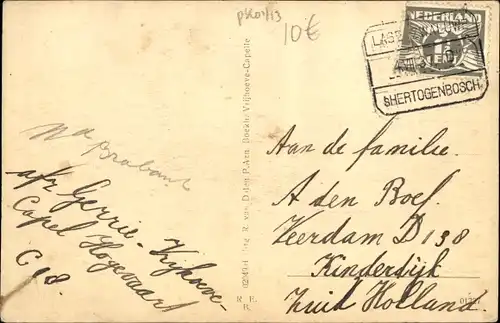 pk01/13
10€
NEDERLAND
CENT
LAGE
'SHERTOGENBOSCH
Nd
Brabant
afz Gerrie - Vrijhoeve-
Capel Hogevaart
C 18.
Uitg. R. van Dalen P.Azn. Boekh. Vrijhoeve-Capelle
Aan de familie.
A den Boef.
Veerdam D 138
Kinderdijk
Zuid Holland.